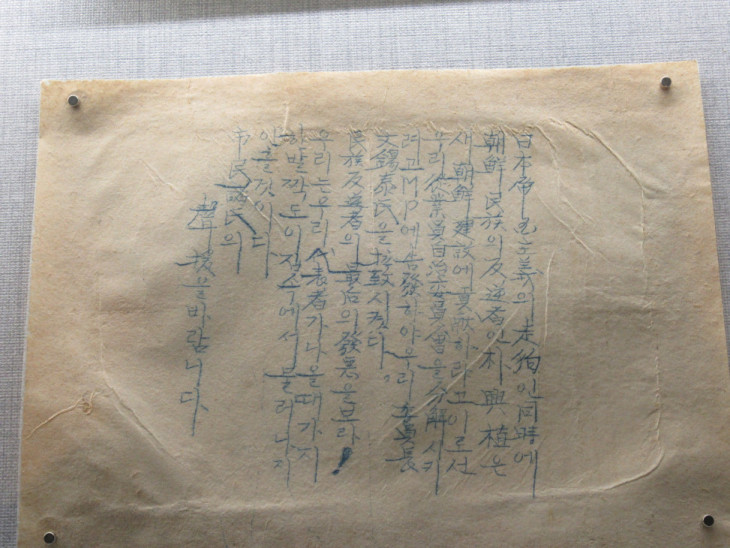 日本帝国主義의 走狗인 同時에
朝鮮民族의 反逆者인 朴興植은
새 朝鮮建設에 貢献하라고 이르선
우리 從業員自治委員會을 分解시키
려고 MP에 告發하야 우리 委員長
文錫泰氏을 拉致시킷다。
民族反逆者의 最后의 發惡을 보라!
우리는 우리 代表者가 나올 때가지
한발짝도 이 집 속에서 물러나지
안흘것이다
市民諸氏의
聲援을 바람니다.